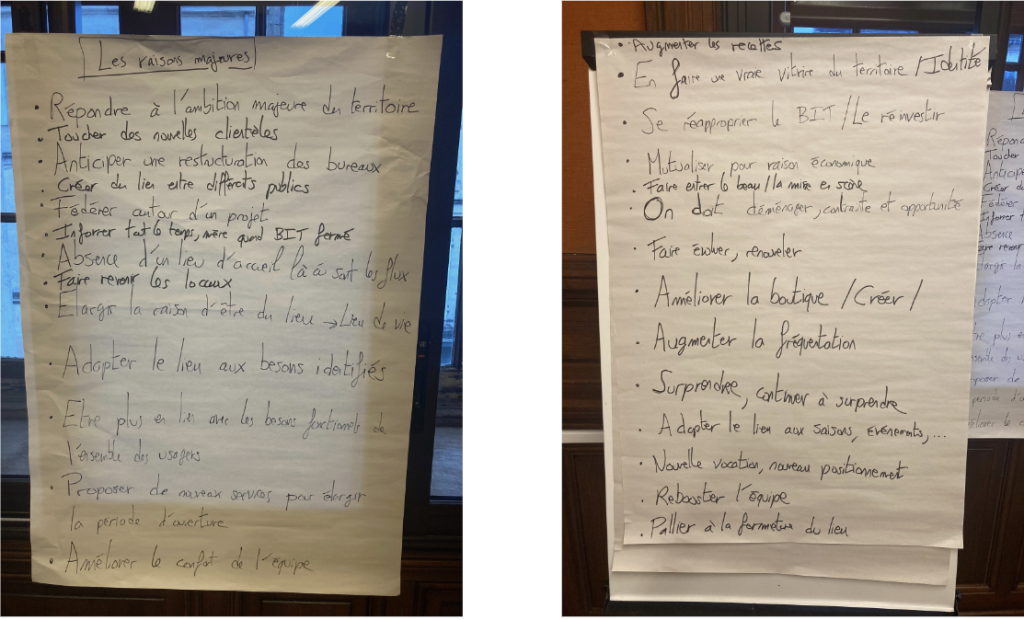 Les raisons majeures
• Répondre à l'ambition majeure du territoire
• Toucher des nouvelles clientèles
• Anticiper une restructuration des bureaux
• Créer du lien entre différents publics
• Fédérer autour d'un projet
• Informer tout le temps, même quand BIT fermé
• Absence d'un lieu d'accueil là où sont les flux
• Faire revenir les locaux
• Elargir la raison d'être du lieu → Lieu de vie
• Adapter le lieu aux besoins identifiés
• Etre plus en lien avec les besoins fonctionnels de
l'ensemble des usagers
• Proposer de nouveaux services pour élargir
la période d'ouverture
• Améliorer le confort de l'équipe
• Augmenter les recettes
• En faire une vraie vitrine du territoire / Identité
• Se réapproprier le BIT / Le réinvestir
• Mutualiser pour raison économique
• Faire entrer le beau / la mise en scène
• On doit déménager, contrainte et opportunité
• Faire évoluer, renouveler
• Améliorer la boutique / Créer /
• Augmenter la fréquentation
• Surprendre, continuer à surprendre
• Adapter le lieu aux saisons, événements, ...
• Nouvelle vocation, nouveau positionnement
• Rebooster l'équipe
• Pallier à la fermeture du lieu